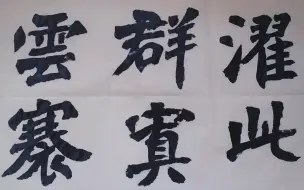 濯此
群冥
雲褰